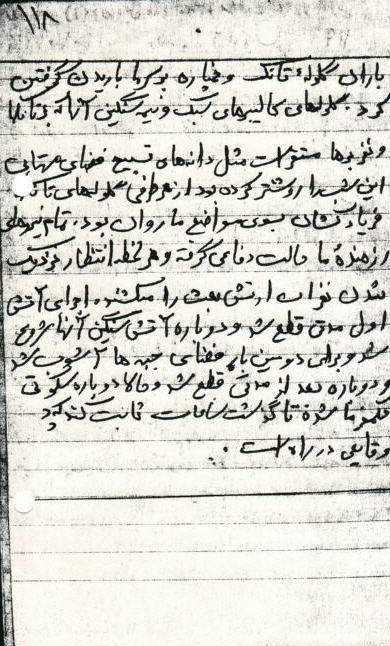 ۱۱۸
باران گلوله تانک و خمپاره بر سر ما باریدن گرفتن
کرد. گلوله‌های کالیبرهای سبک و نیمه سنگین آنها به تانکها
و نفربرها مستقر است مثل دانه‌های تسبیح فضای مهتابی
این شب را روشنتر کرده بود از هر طرفی گلوله‌های تانک
فریاد کشان بسوی مواضع ما روان بود. تمام نیروهای
رزمنده ما حالت دفاعی گرفته و هر لحظه انتظار نزدیک
شدن نفرات ارتش بعث را میکشند. اجرای آتش
اول مدتی قطع شد و دوباره آتش سنگین آنها شروع
شد و برای دومین بار فضای جبهه ها آشوب شد
و دوباره بعد از مدتی قطع شد و حالا دوباره سکوتی
حکمفرما شده تا گذشت ساعات ثابت کند که چه
وقایعی در راه است.